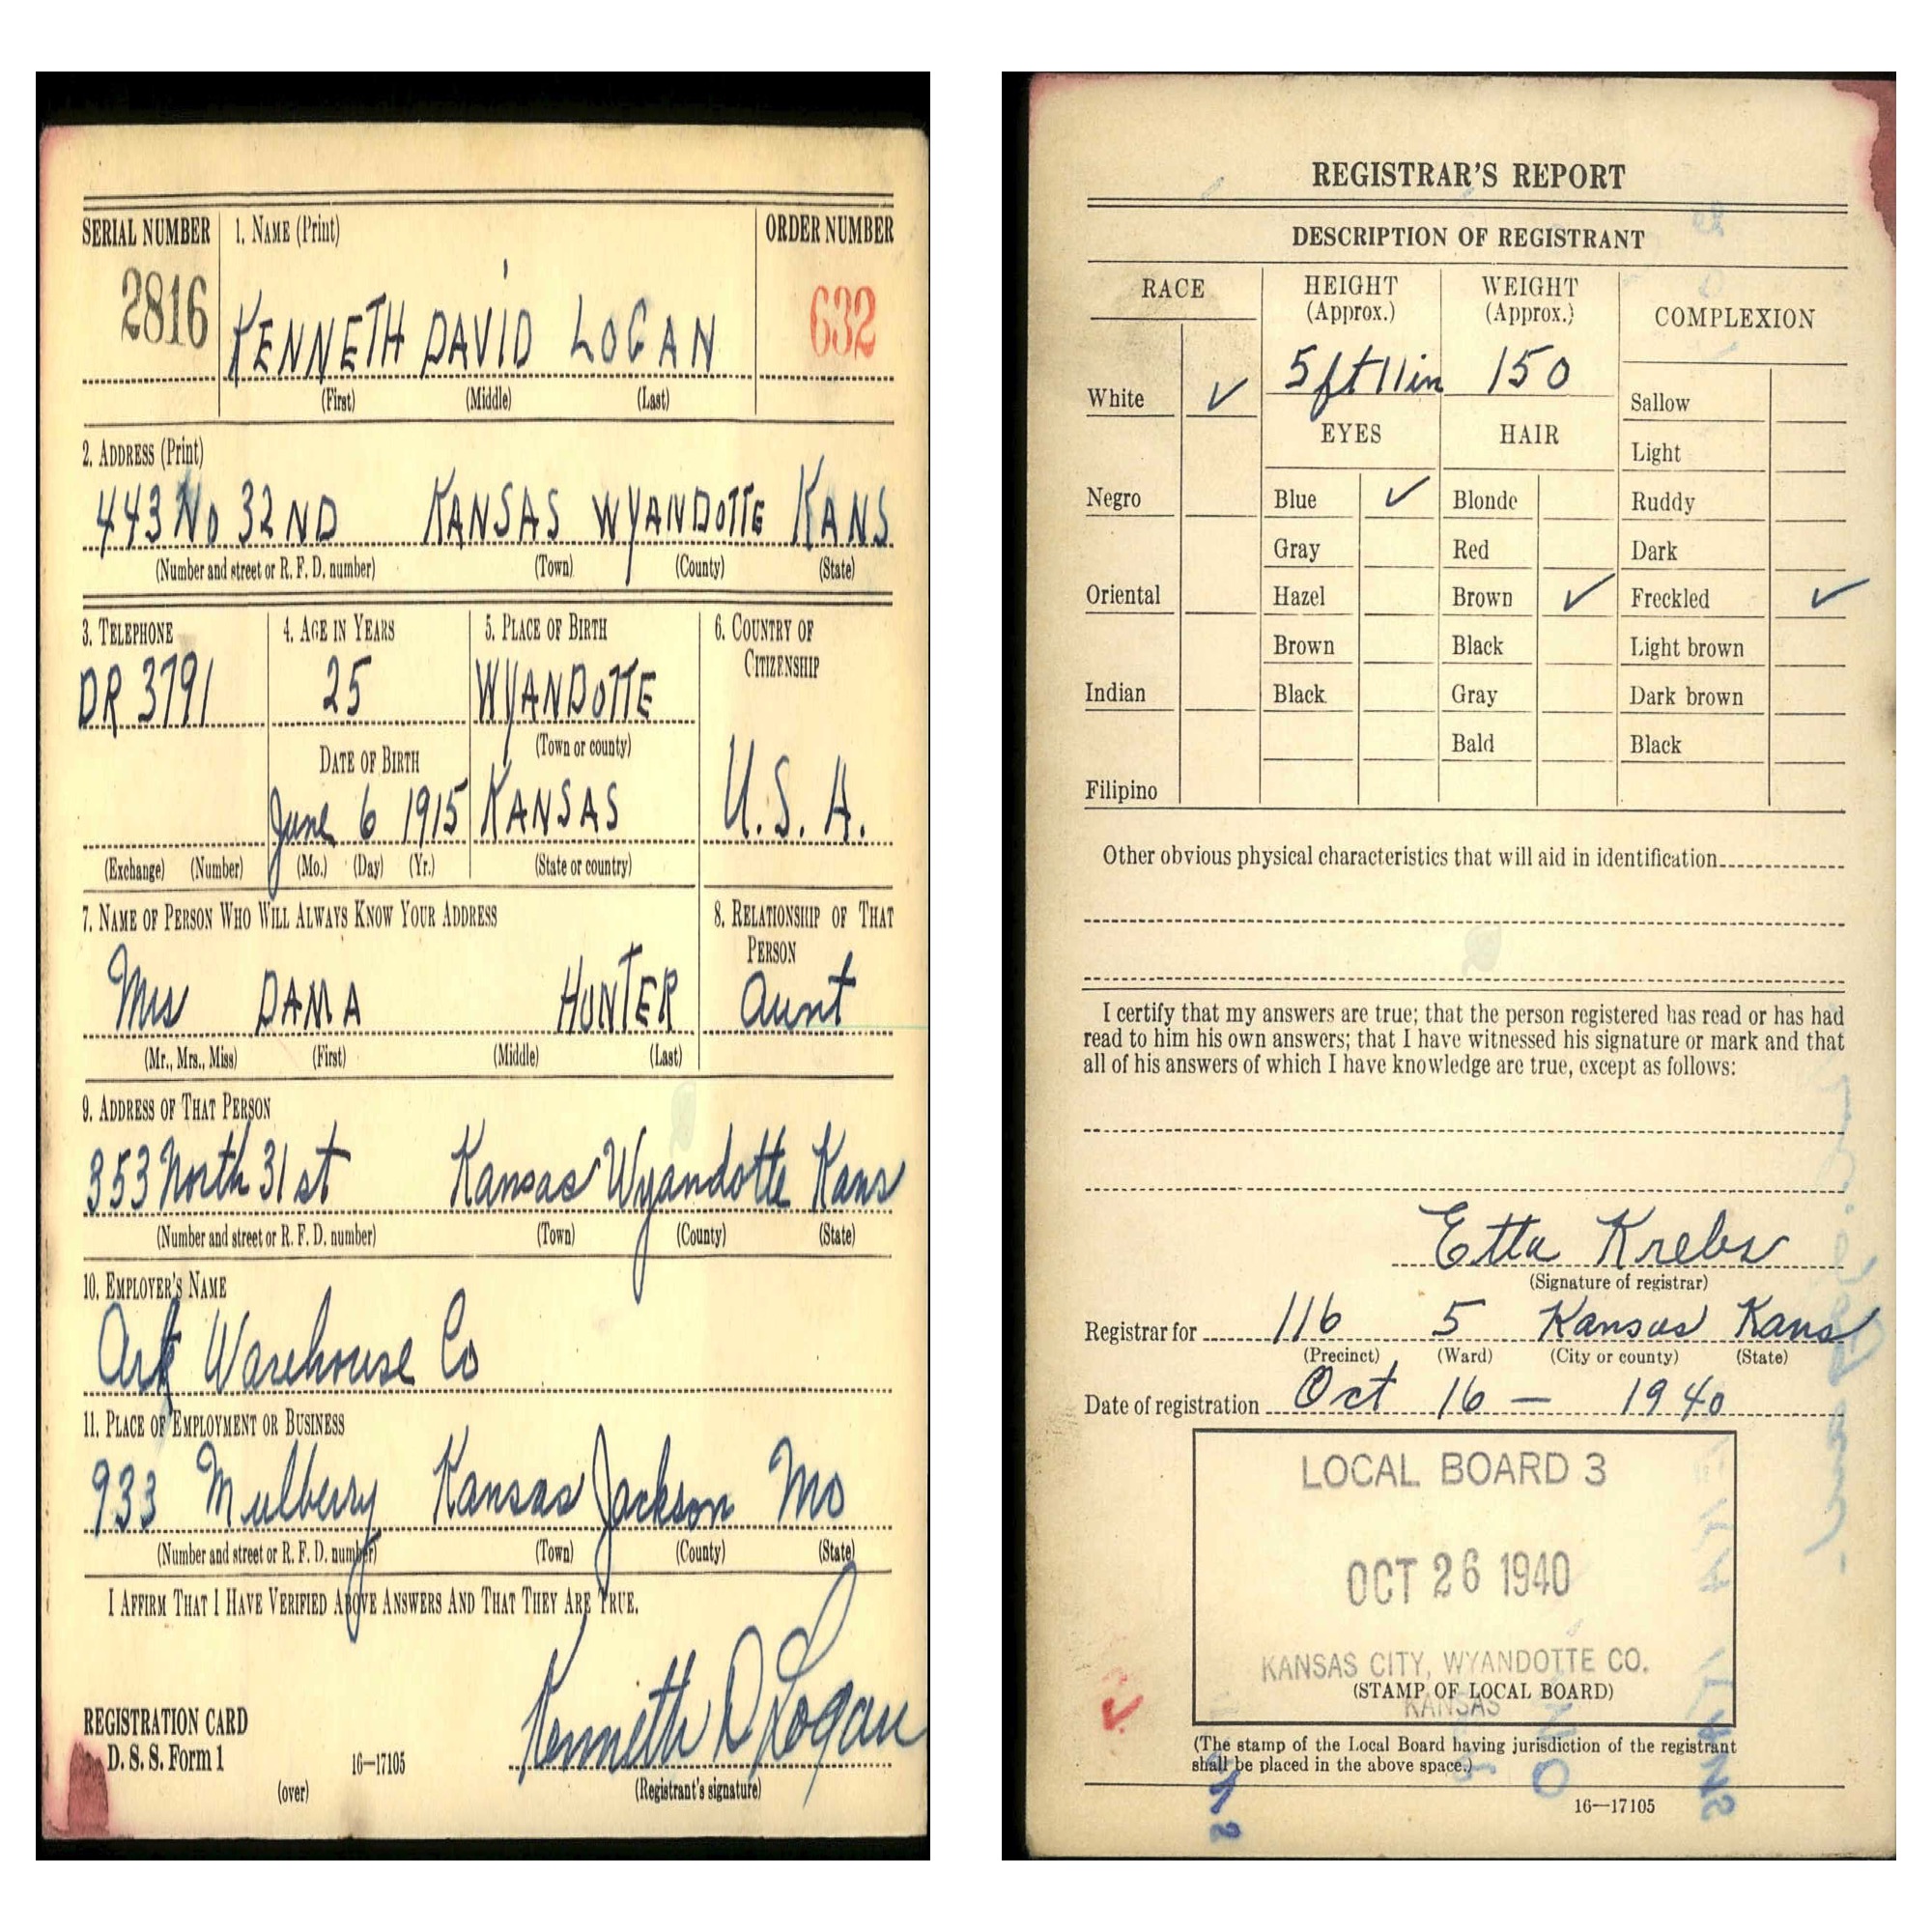 SERIAL NUMBER 1. NAME (Print) ORDER NUMBER
2816 KENNETH DAVID LOGAN 632
(First) (Middle) (Last)
2. ADDRESS (Print)
443 No 32ND KANSAS WYANDOTTE KANS
(Number and street or R. F. D. number) (Town) (County) (State)
3. TELEPHONE 4. AGE IN YEARS 5. PLACE OF BIRTH 6. COUNTRY OF
CITIZENSHIP
DR 3791 25 WYANDOTTE
(Town or county)
DATE OF BIRTH
June 6 1915 KANSAS U.S.A.
(Exchange) (Number) (Mo.) (Day) (Yr.) (State or country)
7. NAME OF PERSON WHO WILL ALWAYS KNOW YOUR ADDRESS 8. RELATIONSHIP OF THAT
PERSON
Mrs DAMA HUNTER Aunt
(Mr., Mrs., Miss) (First) (Middle) (Last)
9. ADDRESS OF THAT PERSON
353 North 31st Kansas Wyandotte Kans
(Number and street or R. F. D. number) (Town) (County) (State)
10. EMPLOYER'S NAME
Ark Warehouse Co
11. PLACE OF EMPLOYMENT OR BUSINESS
933 Mulberry Kansas Jackson Mo
(Number and street or R. F. D. number) (Town) (County) (State)
I AFFIRM THAT I HAVE VERIFIED ABOVE ANSWERS AND THAT THEY ARE TRUE.
Kenneth D Logan
REGISTRATION CARD
D. S. S. Form 1 16—17105
(over) (Registrant's signature)
REGISTRAR'S REPORT
DESCRIPTION OF REGISTRANT
RACE HEIGHT WEIGHT COMPLEXION
(Approx.) (Approx.)
5 ft 11 in 150
White ✓ Sallow
EYES HAIR Light
Negro Blue ✓ Blonde Ruddy
Gray Red Dark
Oriental Hazel Brown ✓ Freckled ✓
Brown Black Light brown
Indian Black Gray Dark brown
Bald Black
Filipino
Other obvious physical characteristics that will aid in identification
I certify that my answers are true; that the person registered has read or has had
read to him his own answers; that I have witnessed his signature or mark and that
all of his answers of which I have knowledge are true, except as follows:
Etta Krebs
(Signature of registrar)
Registrar for 116 5 Kansas Kans
(Precinct) (Ward) (City or county) (State)
Date of registration Oct 16 — 1940
LOCAL BOARD 3
OCT 26 1940
KANSAS CITY, WYANDOTTE CO.
(STAMP OF LOCAL BOARD)
KANSAS
(The stamp of the Local Board having jurisdiction of the registrant
shall be placed in the above space.)
16—17105